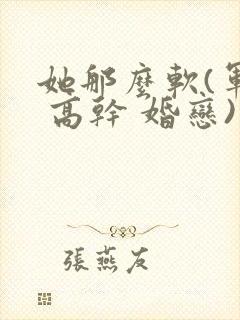 她那麼軟(軍
高幹 婚戀)
張燕友